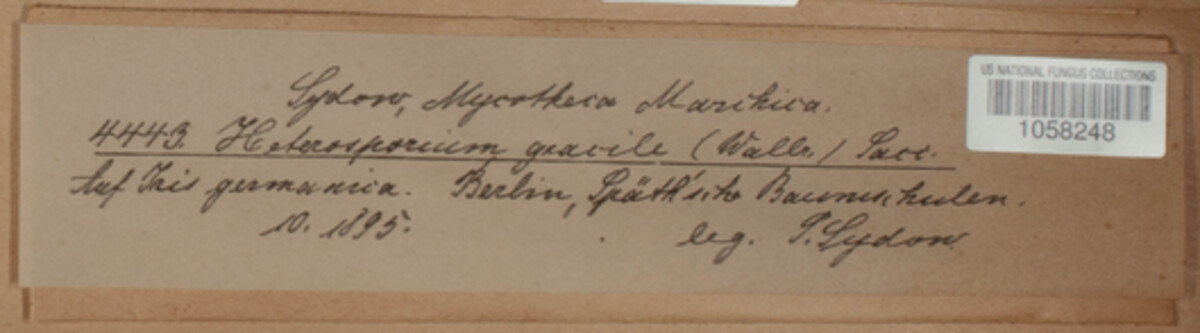 Sydow, Mycotheca Marchica.
4443. Heterosporium gracile (Wallr.) Sacc.
Auf Iris germanica. Berlin, Späth'sche Baumschulen.
10. 1895. leg. P. Sydow.
US NATIONAL FUNGUS COLLECTIONS
1058248